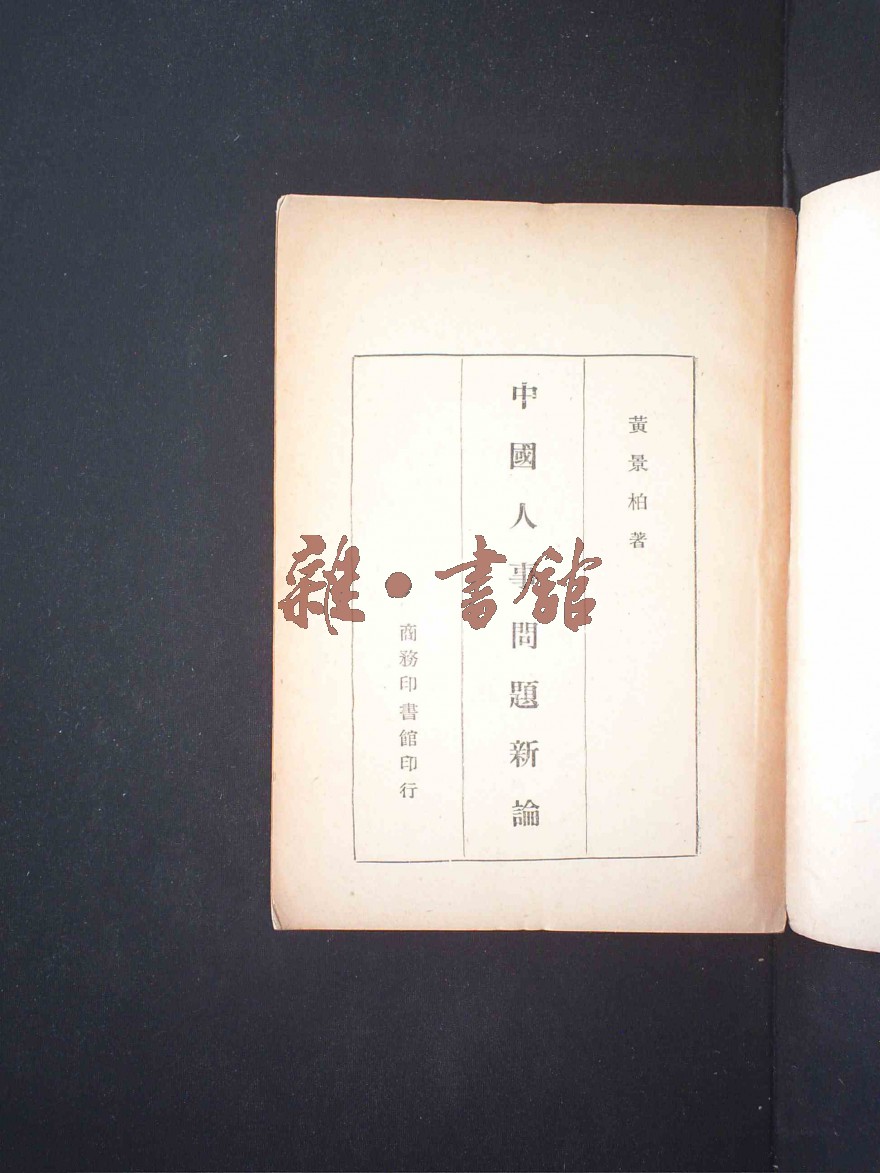 黃景柏著
中國人事問題新論
商務印書館印行
雜·書館